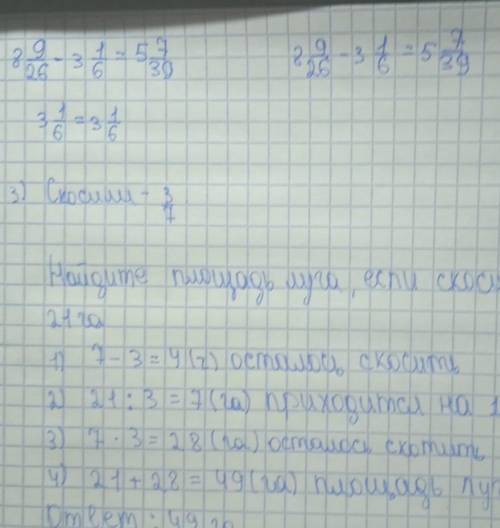 8 9/26 - 3 1/6 = 5 7/39   8 9/26 - 3 1/6 = 5 7/39
3 1/6 = 3 1/6
3) Скосили - 3/7
Найдите площадь луга, если скоси
21 га
1) 7 - 3 = 4 (г) осталось скосить
2) 21 : 3 = 7 (га) приходится на 1
3) 7 · 3 = 28 (га) осталось скотить
4) 21 + 28 = 49 (га) площадь луг
Ответ: 49 га